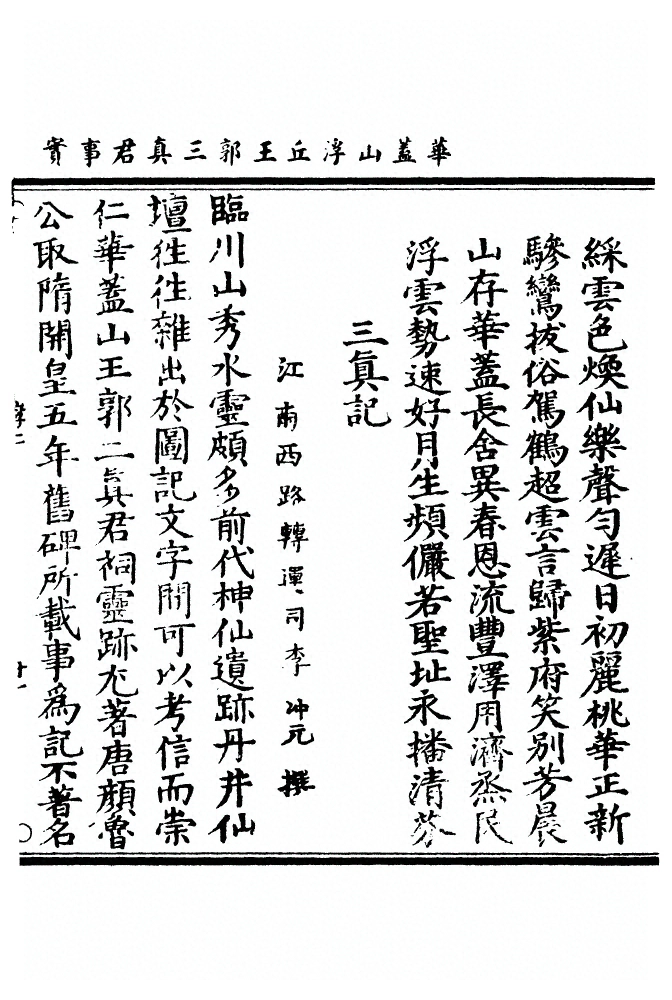 華蓋山浮丘王郭三真君事實
綵雲色煥仙樂聲勻遲日初麗桃華正新
驂鸞拔俗駕鶴超雲言歸紫府笑別芳晨
山存華蓋長舍異春恩流豐澤用濟烝民
浮雲勢速好月生頻儼若聖址永播清芬
三眞記
江南西路轉運司李冲元撰
臨川山秀水靈頗多前代神仙遺跡丹井仙
壇徃徃雜出於圖記文字間可以考信而崇
仁華蓋山王郭二眞君祠靈跡尤著唐顔魯
公取隋開皇五年舊碑所載事爲記不著名